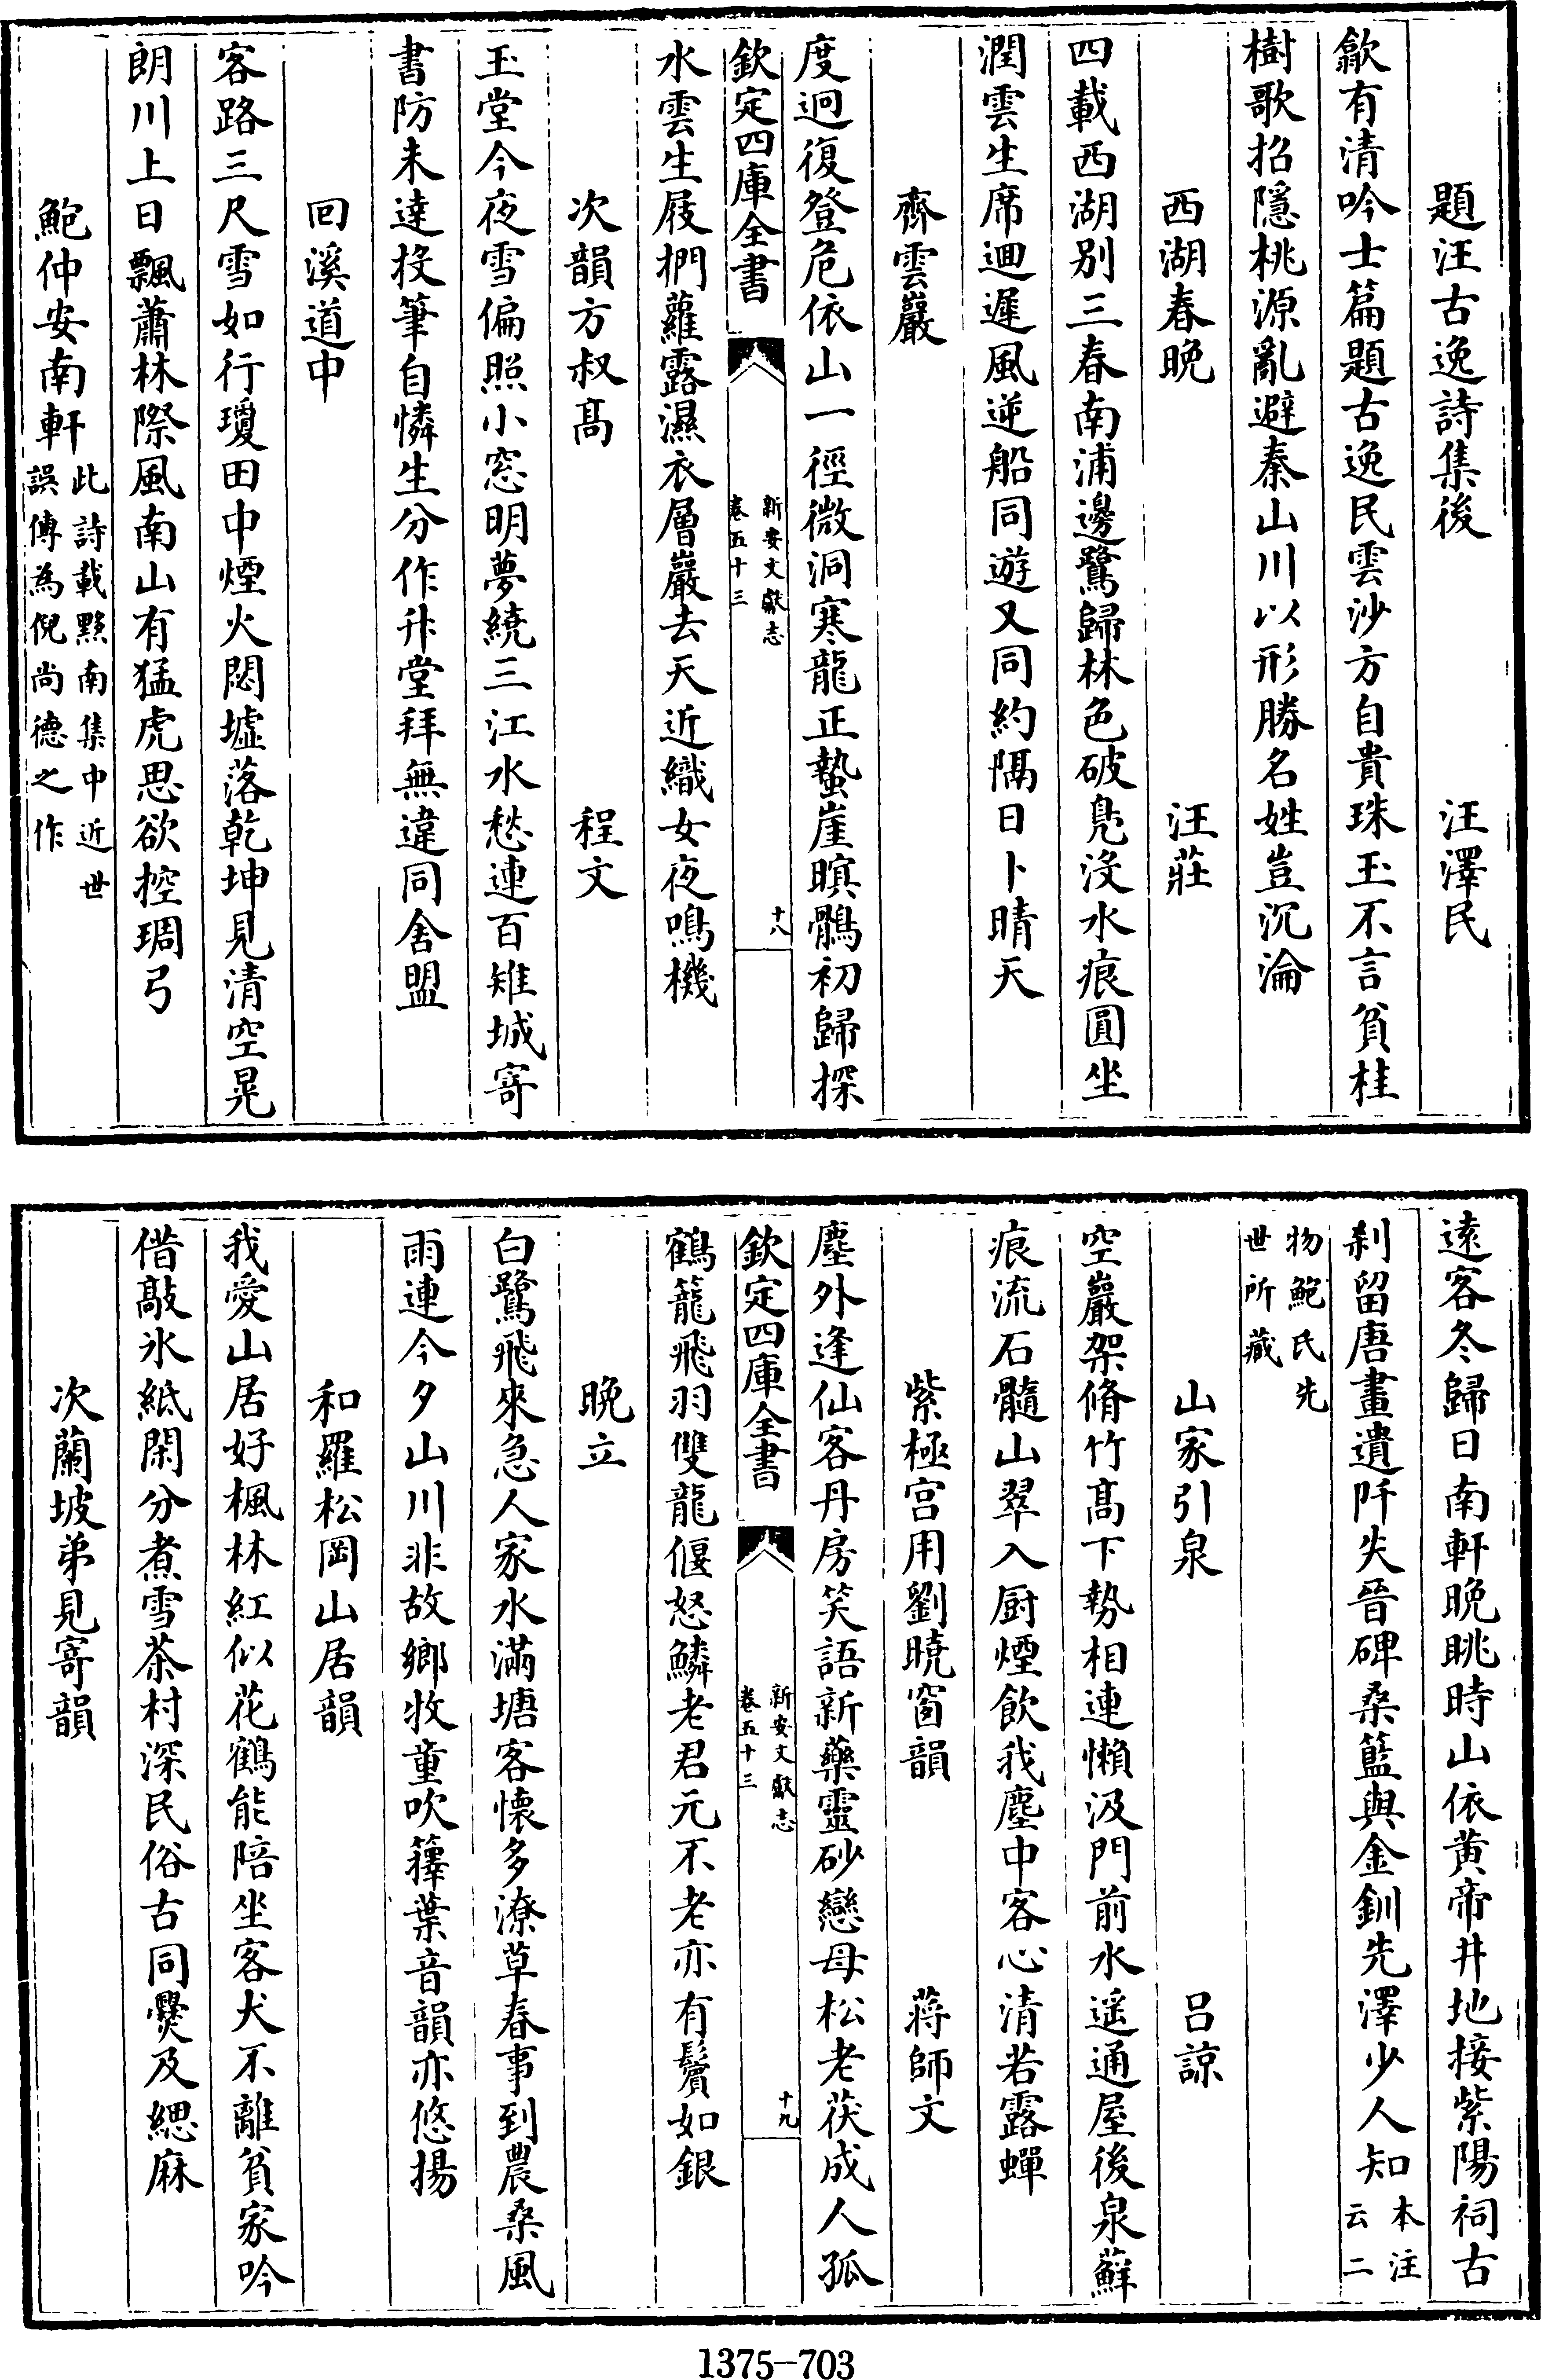 題汪古逸詩集後　汪澤民
歙有清吟士篇題古逸民雲沙方自貴珠玉不言貧桂
樹歌招隱桃源亂避秦山川以形勝名姓豈沉淪
西湖春晚　汪莊
四載西湖別三春南浦邊鷺歸林色破鳧没水痕圓坐
潤雲生席迴遲風逆船同遊又同約隔日卜晴天
齊雲巖
度迥復登危依山一徑微洞寒龍正蟄崖暝鶻初歸探
欽定四庫全書
新安文獻志
卷五十三
十八
水雲生屐捫蘿露濕衣層巖去天近織女夜鳴機
次韻方叔髙　程文
玉堂今夜雪偏照小窓明夢繞三江水愁連百雉城寄
書防未達投筆自憐生分作升堂拜無違同舍盟
回溪道中
客路三尺雪如行瓊田中煙火閟墟落乾坤見清空晃
朗川上日飄蕭林際風南山有猛虎思欲控琱弓
鮑仲安南軒此詩載黟南集中近世
誤傳為倪尚德之作
逺客冬歸日南軒晩眺時山依黄帝井地接紫陽祠古
刹留唐畫遺阡失晉碑桑籃與金釧先澤少人知本注
云二
物鮑氏先
世所藏
山家引泉　吕諒
空巖架脩竹髙下勢相連懶汲門前水遥通屋後泉蘚
痕流石髓山翠入厨煙飲我塵中客心清若露蟬
紫極宫用劉曉窗韻　蔣師文
塵外逢仙客丹房笑語新藥靈砂戀母松老茯成人孤
欽定四庫全書
新安文獻志
卷五十三
十九
鶴籠飛羽雙龍偃怒鱗老君元不老亦有鬢如銀
晩立
白鷺飛來急人家水滿塘客懷多潦草春事到農桑風
雨連今夕山川非故鄉牧童吹籜葉音韻亦悠揚
和羅松岡山居韻
我愛山居好楓林紅似花鶴能陪坐客犬不離貧家吟
借敲氷紙閑分煮雪茶村深民俗古同爨及緦麻
次蘭坡弟見寄韻
1375-703